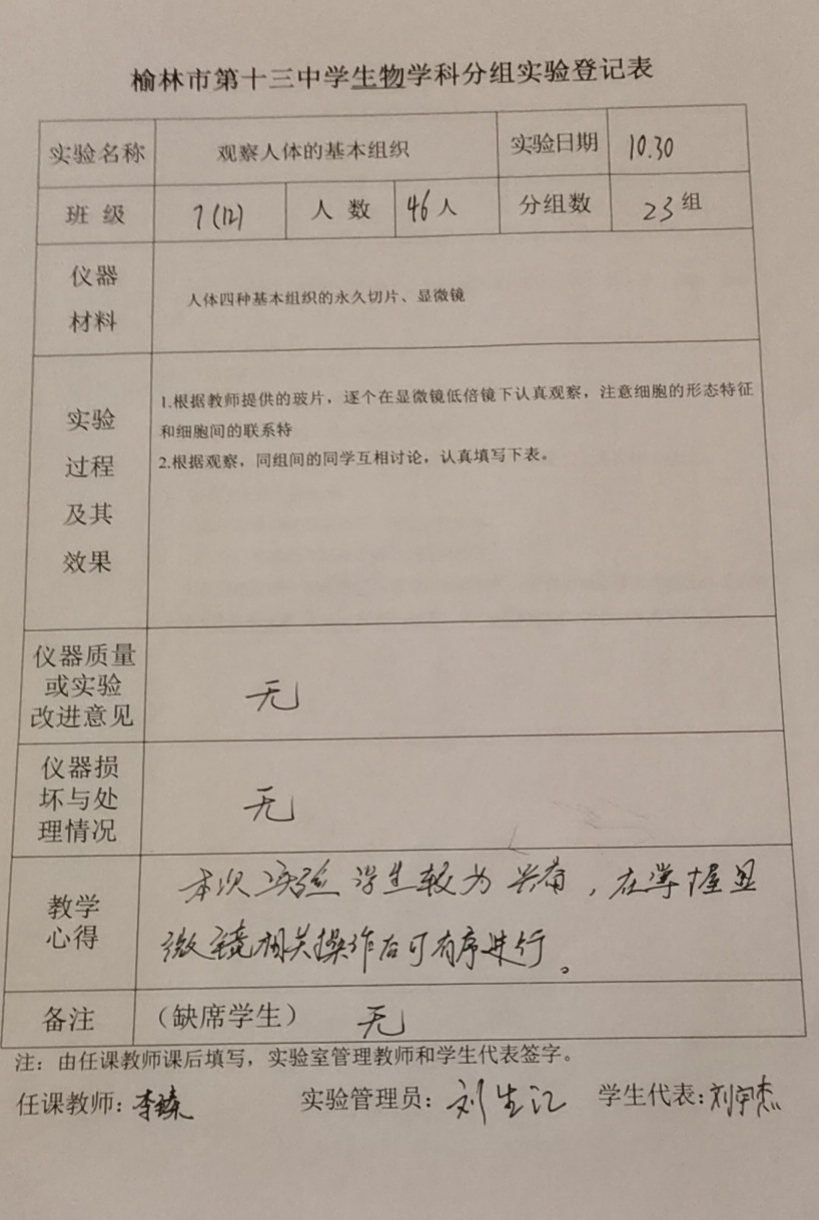 榆林市第十三中学生物学科分组实验登记表
实验名称 观察人体的基本组织 实验日期 10.30
班 级 7(12) 人 数 46人 分组数 23组
仪器
材料
人体四种基本组织的永久切片、显微镜
实验
过程
及其
效果
1.根据教师提供的玻片，逐个在显微镜低倍镜下认真观察，注意细胞的形态特征
和细胞间的联系特
2.根据观察，同组间的同学互相讨论，认真填写下表。
仪器质量
或实验
改进意见
无
仪器损
坏与处
理情况
无
教学
心得
本次实验学生较为兴奋，在掌握显
微镜相关操作后可有序进行。
备注 （缺席学生） 无
注：由任课教师课后填写，实验室管理教师和学生代表签字。
任课教师：李臻 实验管理员：刘生江 学生代表：刘宇杰